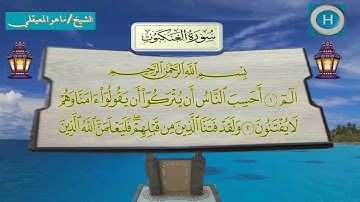 الشيخ/ماهر المعيقلي
H
سورة العنكبوت
بسم الله الرحمن الرحيم
الٓمٓ ١ أَحَسِبَ ٱلنَّاسُ أَن يُتْرَكُوٓا۟ أَن يَقُولُوٓا۟ ءَامَنَّا وَهُمْ
لَا يُفْتَنُونَ ٢ وَلَقَدْ فَتَنَّا ٱلَّذِينَ مِن قَبْلِهِمْ فَلَيَعْلَمَنَّ ٱللَّهُ ٱلَّذِينَ